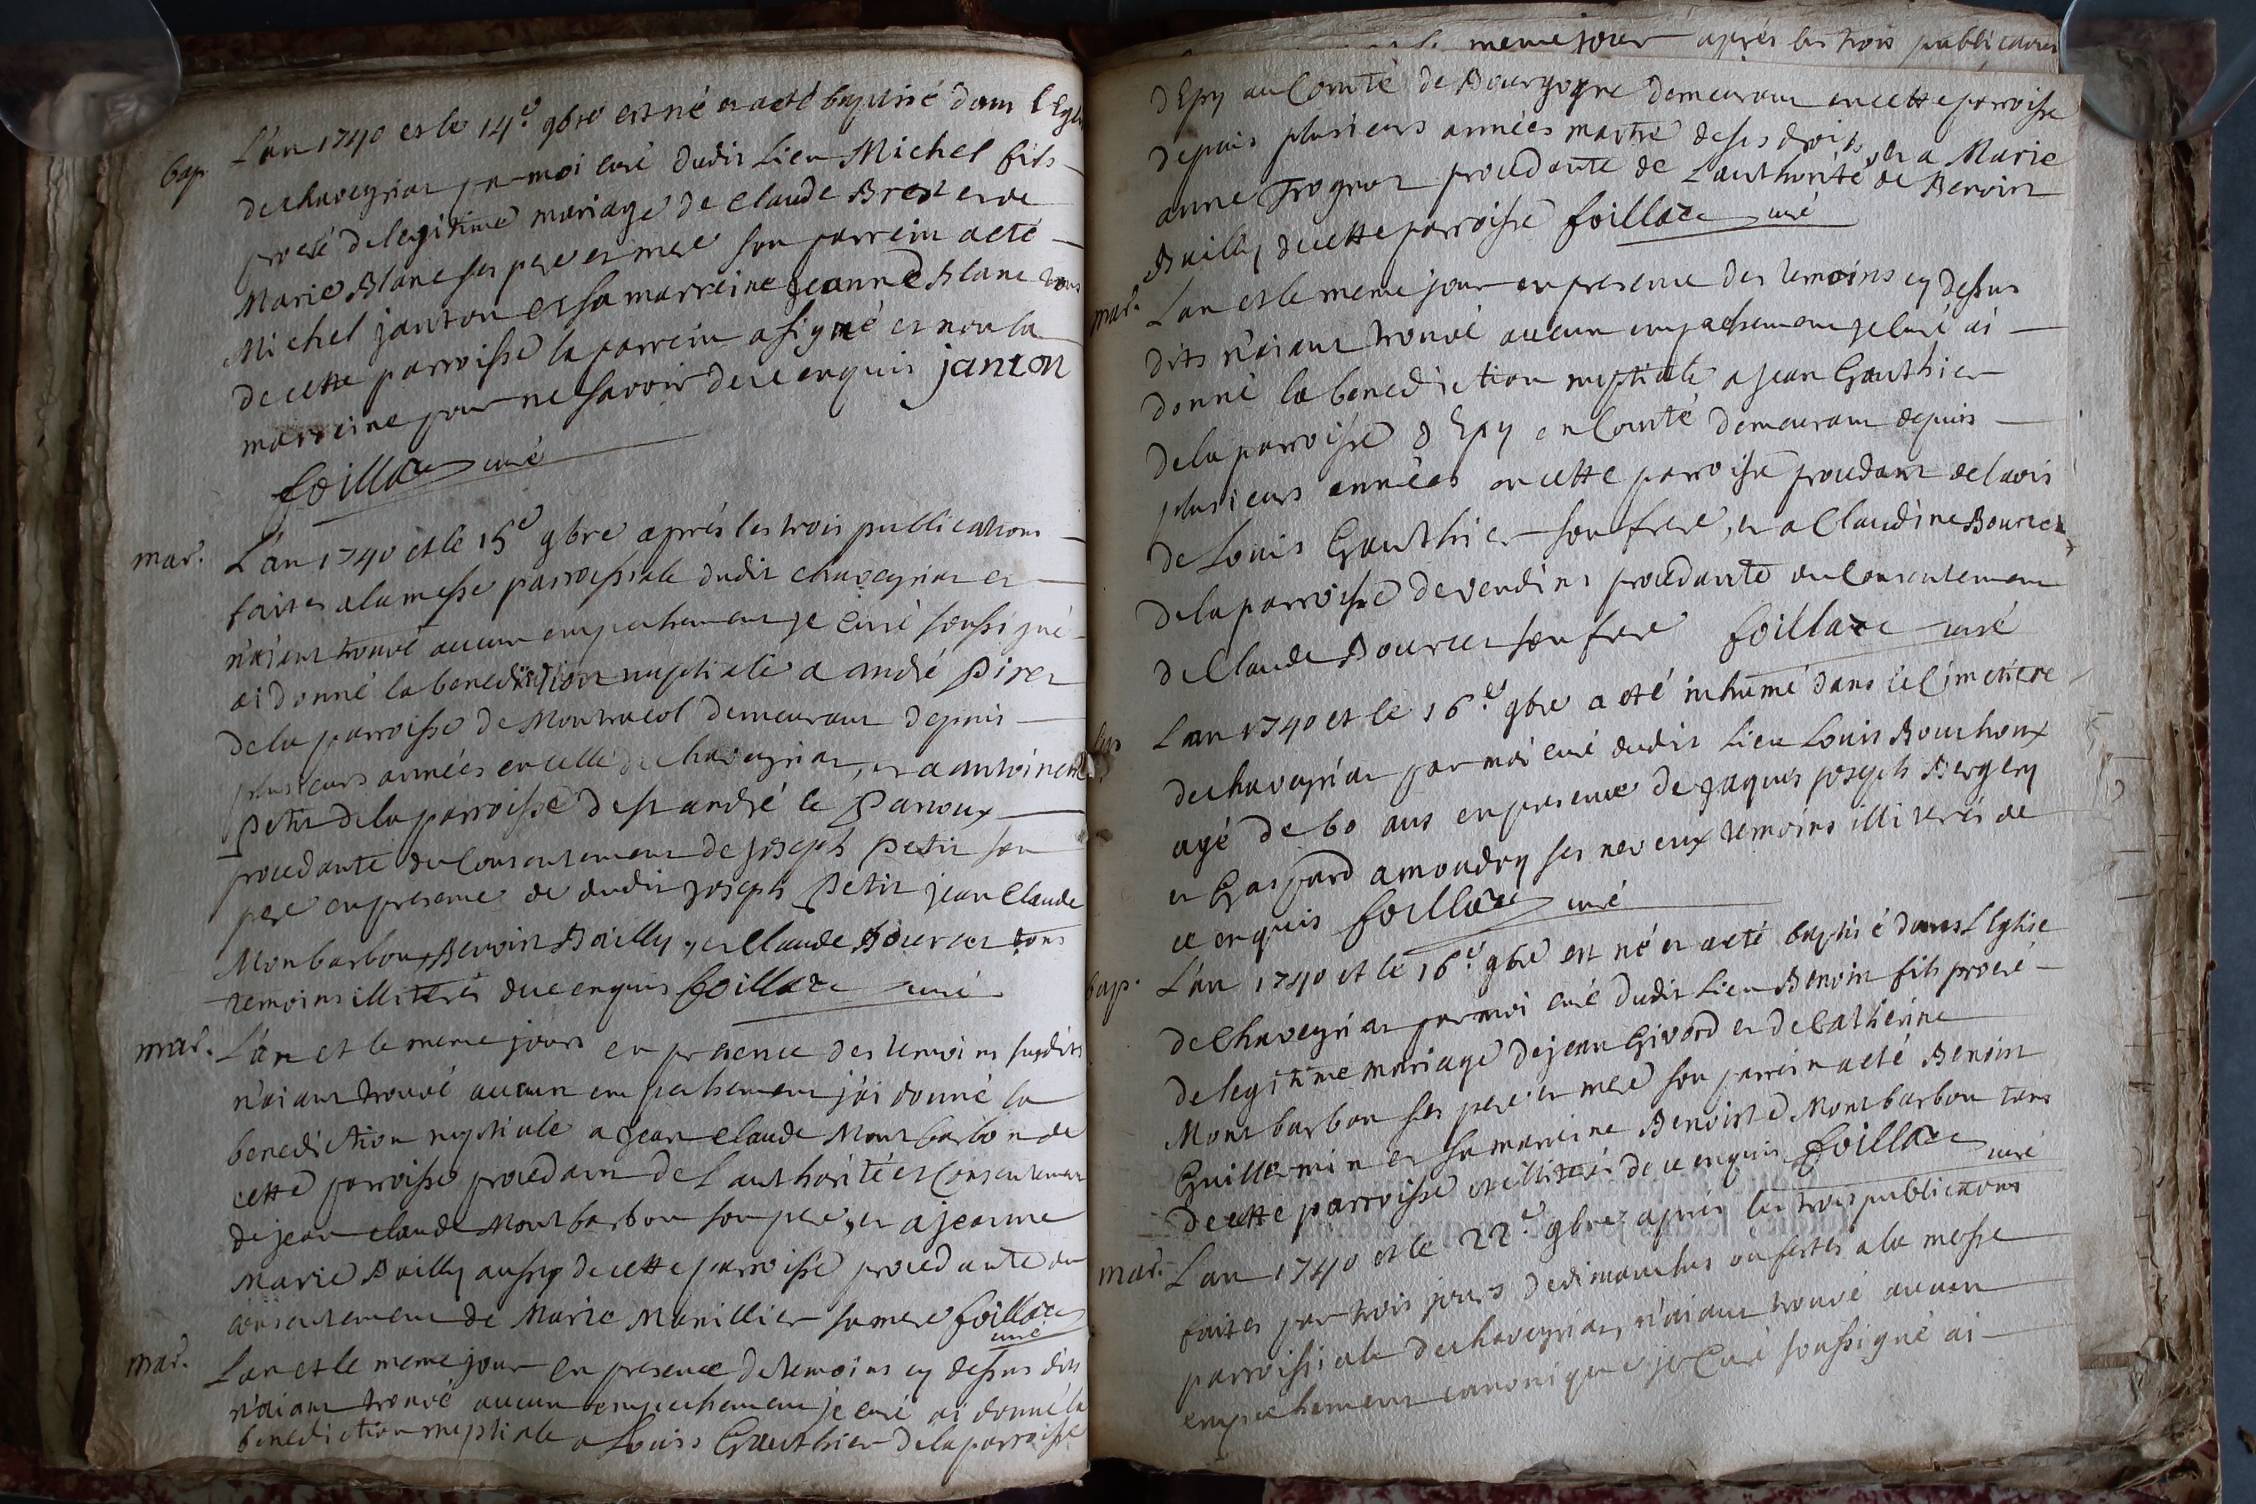 bap. L'an 1740 et le 14.e 9bre est né et a eté baptisé dans l'Egli
de chaveyriat par moi curé dudit Lieu Michel fils
procréé de legitime mariage de Claude Bret et de
Marie Blanc ses pere et mere son parrein a eté
Michel janton et sa marreine Jeanne Blanc tous
de cette parroisse le parrein a signé et non la
marreine pour ne savoir de ce enquis janton
foillaze curé
mar. L'an 1740 et le 15e 9bre aprés les trois publications
faites a la messe parroissiale dudit chaveyriat et
n'aiant trouvé aucun empechement je Curé soussigné
ai donné la benediction nuptiale a andré Piret
de la parroisse de Montracol demeurant depuis
plusieurs années en celle de chaveyriat, et a antoinette
petit de la parroisse de st andré le Panoux
procedante du Consentement de joseph petit son
pere en presence de dudit joseph petit jean Claude
Monbarbon, Benoit Bailly, et Claude Bourcet tous
temoins illiterés de ce enquis foillaze curé
mar. L'an et le meme jours en presence des temoins susdits
n'aiant trouvé aucun empechement j'ai donné la
benediction nuptiale a Jean Claude Montbarbon de
cette parroisse procedant de l'authorité et Consentement
de jean claude Montbarbon son pere, et a jeanne
Marie Bailly aussy de cette parroisse procedante du
consentement de Marie Manillier sa mere foillaze
curé
mar. L'an et le meme jour en presence de temoins cy dessus dits
n'aiant trouvé aucun empechement je curé ai donné la
benediction nuptiale a Louis Gauthier de la parroisse
meme jour aprés les trois publications
d'Epy au Comté de Bourgogne demeurant en cette parroisse
depuis plusieurs années maitre de ses droits, et a Marie
anne Trognot procedante de L'authorité de Benoit
Bailly de cette parroisse foillaze curé
mar. L'an et le meme jour en presence des temoins cy dessus
dits n'aiant trouvé aucun empechement je Curé ai
donné la benediction nuptiale a jean Gauthier
de la parroisse d'Epy en Comté demeurant depuis
plusieurs années en cette parroisse procedant de l'avis
de Louis Gauthier son frere, et a Claudine Bourcet
de la parroisse de vendins procedante du Consentement
de Claude Bourcet son frere foillaze curé
L'an 1740 et le 16.e 9bre a eté inhumé dans le Cimetiere
de chaveyriat par moi curé dudit Lieu Louis Bouchoux
agé de 60 ans en presence de jaques joseph Bergery
et Gaspard amoudry ses neveux temoins illiterés de
ce enquis foillaze curé
bap. L'an 1740 et le 16.e 9bre est né et a eté baptisé dans L'Eglise
de Chaveyriat par moi curé dudit Lieu Benoit fils procréé
de legitime mariage de jean Givord et de Catherine
Montbarbon ses pere et mere son parrein a eté Benoit
Guillermin et sa marreine Benoiste Montbarbon tous
de cette parroisse et illiterés de ce enquis foillaze
curé
mar. L'an 1740 et le 22.e 9bre aprés les trois publications
faites par trois jours de dimanches ou festes a la messe
parroissiale de chaveyriat, n'aiant trouvé aucun
empechement canonique je Curé soussigné ai